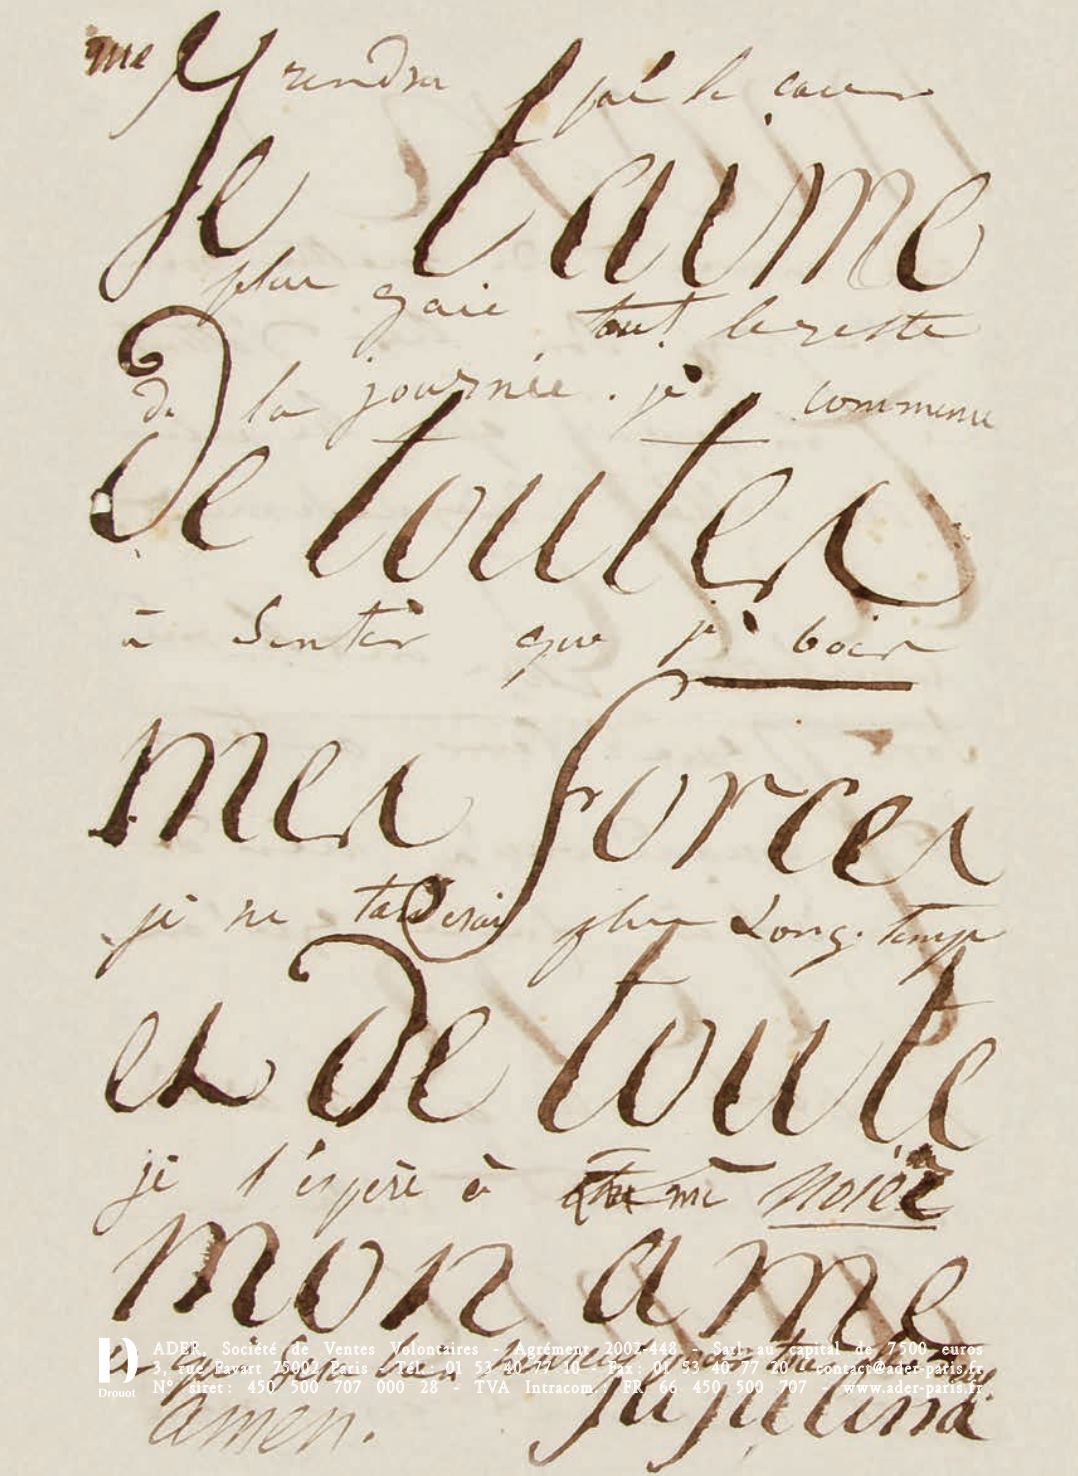 me rendra j'ai le cœur
Je t'aime
plus gaie tout le reste
de la journée. je commence
De toutes
à sentir que je bois
mes forces
je ne tarderai plus Long-temps
et De toute
je l'espère à me noïer
mon ame
amen. juju
ADER, Société de Ventes Volontaires - Agrément 2002-448 - Sarl au capital de 7500 euros
3, rue Favart 75002 Paris - Tél : 01 53 40 77 10 - Fax : 01 53 40 77 20 - contact@ader-paris.fr
N° siret : 450 500 707 000 28 - TVA Intracom. : FR 66 450 500 707 - www.ader-paris.fr
Drouot